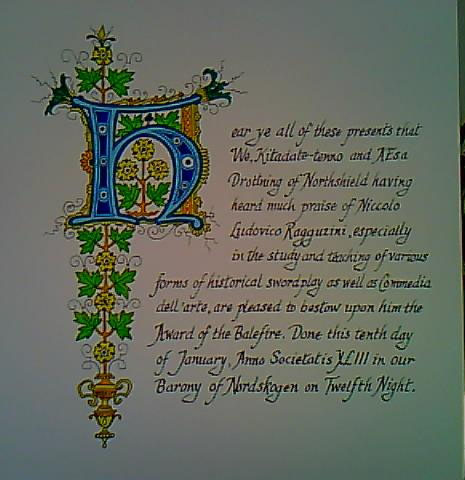 Hear ye all of these presents that
We, Kitadate-tenno and AEsa
Drottning of Northshield having
heard much praise of Niccolo
Ludovico Ragguzini, especially
in the study and teaching of various
forms of historical swordplay as well as Commedia
dell'arte, are pleased to bestow upon him the
Award of the Balefire. Done this tenth day
of January, Anno Societatis XLIII in our
Barony of Nordskogen on Twelfth Night.